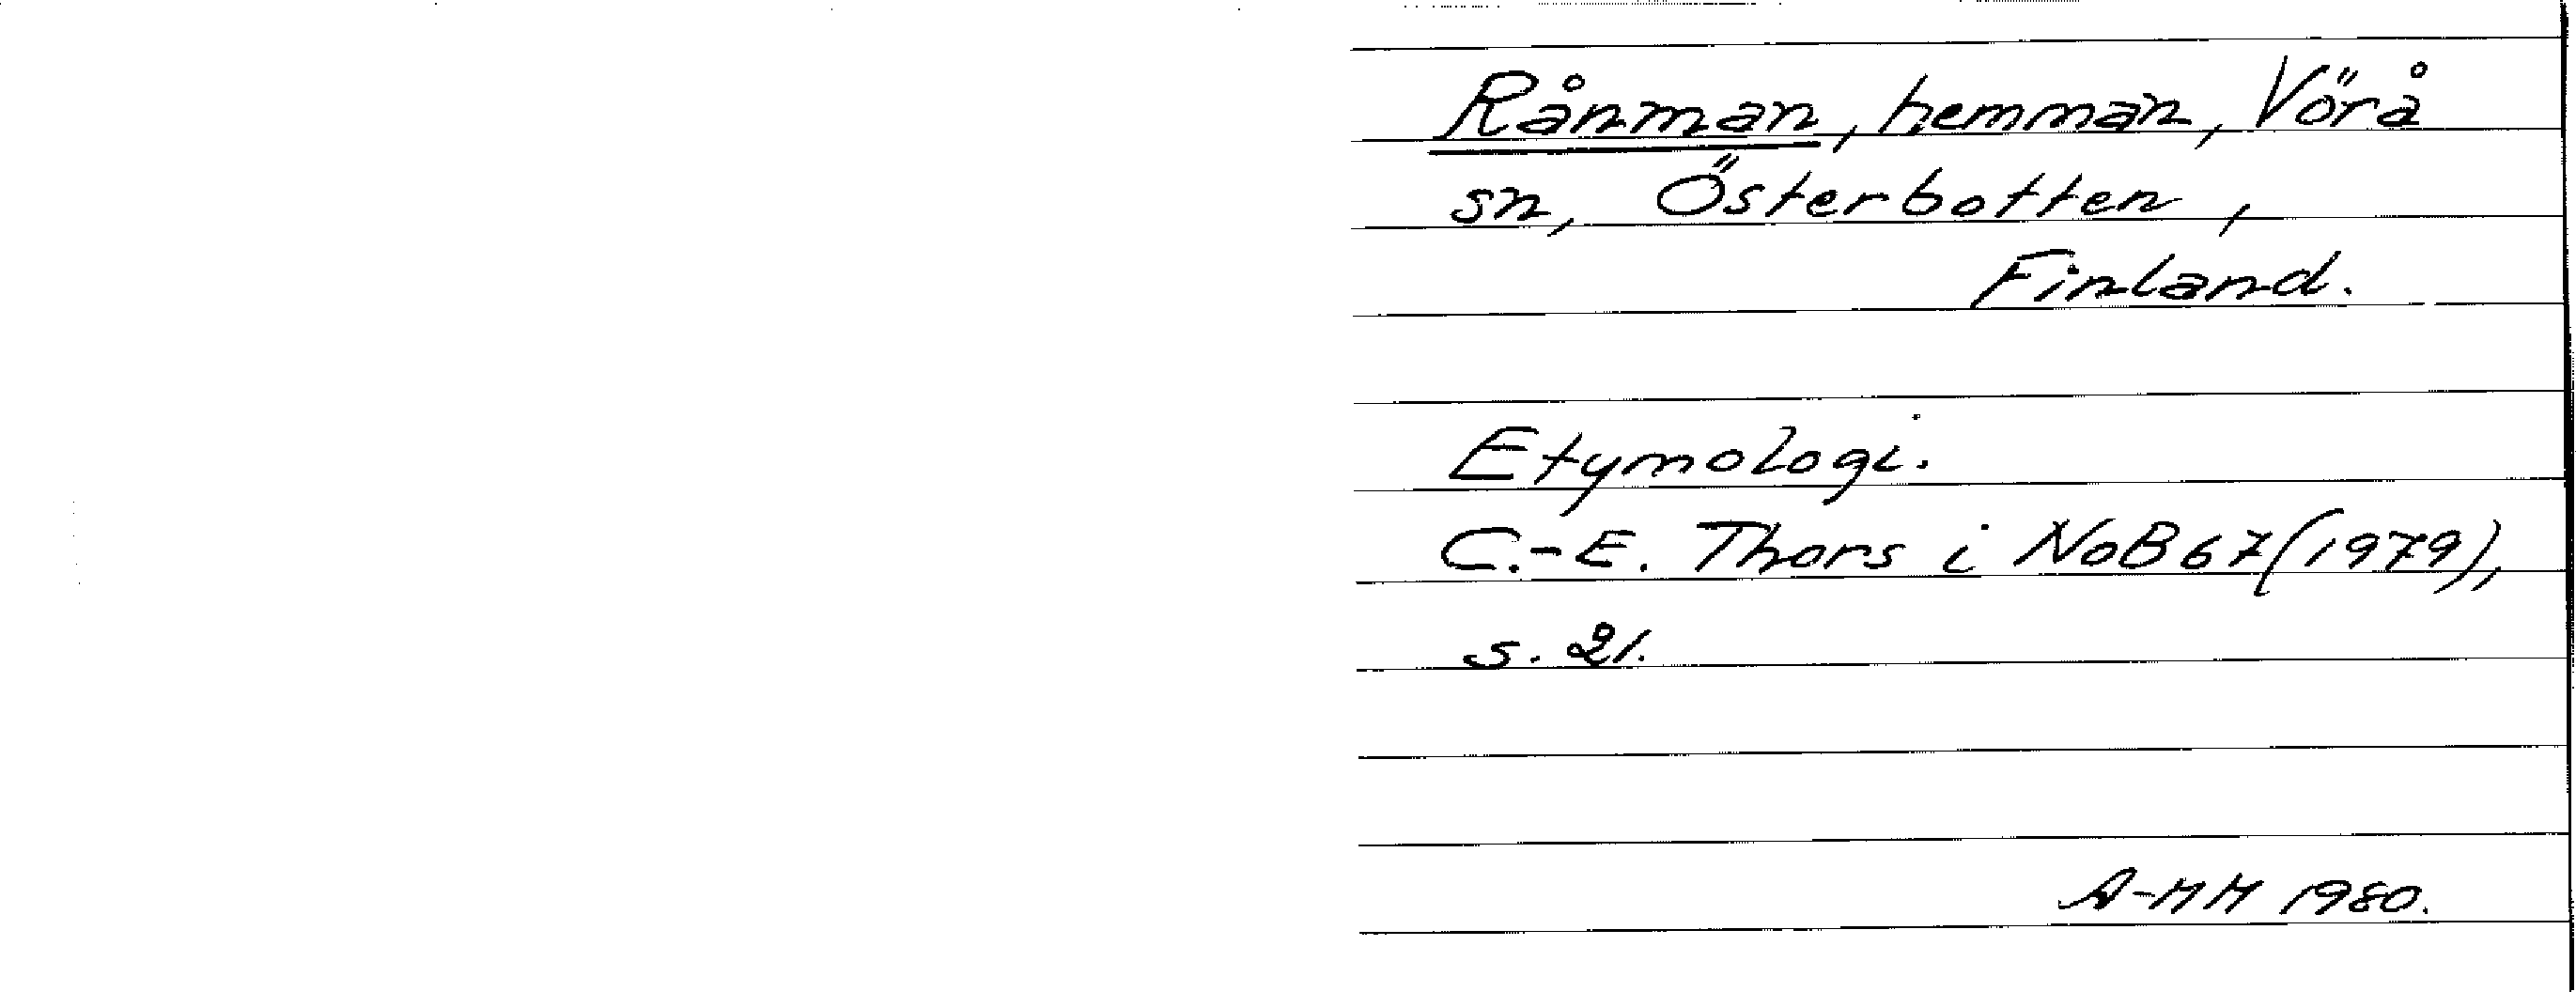 Rånman, hemman, Vörå
sn, Österbotten,
Finland.
Etymologi.
C.-E. Thors i NoB 67 (1979),
s. 21.
A-MM 1980.